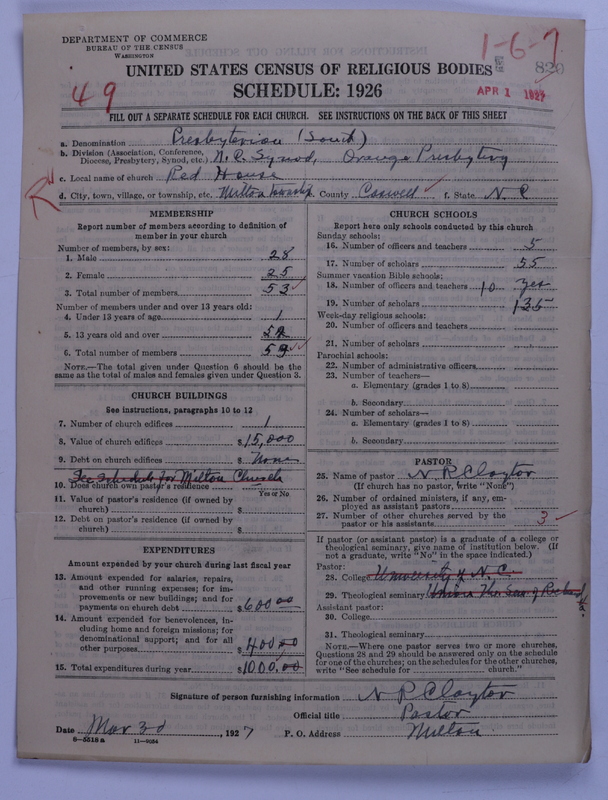 DEPARTMENT OF COMMERCE
BUREAU OF THE CENSUS
WASHINGTON
1-6-7
820
UNITED STATES CENSUS OF RELIGIOUS BODIES
SCHEDULE: 1926
49
APR 1 1927
FILL OUT A SEPARATE SCHEDULE FOR EACH CHURCH. SEE INSTRUCTIONS ON THE BACK OF THIS SHEET
a. Denomination Presbyterian (South)
b. Division (Association, Conference, Diocese, Presbytery, Synod, etc.) N.C. Synod, Orange Presbytery
c. Local name of church Red House
d. City, town, village, or township, etc. Milton township e. County Caswell f. State N.C
MEMBERSHIP
Report number of members according to definition of
member in your church
Number of members, by sex:
1. Male 28
2. Female 25
3. Total number of members 53
Number of members under and over 13 years old:
4. Under 13 years of age 1
5. 13 years old and over 52
6. Total number of members 53
NOTE.—The total given under Question 6 should be the
same as the total of males and females given under Question 3.
CHURCH BUILDINGS
See instructions, paragraphs 10 to 12
7. Number of church edifices 1
8. Value of church edifices $15,000
9. Debt on church edifices $ None
See Schedule for Milton Church
10. Does church own pastor's residence
Yes or No
11. Value of pastor's residence (if owned by
church) $
12. Debt on pastor's residence (if owned by
church) $
EXPENDITURES
Amount expended by church during last fiscal year
13. Amount expended for salaries, repairs,
and other running expenses; for im-
provements or new buildings; and for
payments on church debt $600.00
14. Amount expended for benevolences, in-
cluding home and foreign missions; for
denominational support; and for all
other purposes $400.00
15. Total expenditures during year $1000.00
CHURCH SCHOOLS
Report here only schools conducted by this church
Sunday schools:
16. Number of officers and teachers 5
17. Number of scholars 55
Summer vacation Bible schools:
18. Number of officers and teachers 10 yes
19. Number of scholars 135
Week-day religious schools:
20. Number of officers and teachers
21. Number of scholars
Parochial schools:
22. Number of administrative officers
23. Number of teachers—
a. Elementary (grades 1 to 8)
b. Secondary
24. Number of scholars—
a. Elementary (grades 1 to 8)
b. Secondary
PASTOR
25. Name of pastor N R Claytor
(If church has no pastor, write "None")
26. Number of ordained ministers, if any, em-
ployed as assistant pastors
27. Number of other churches served by the
pastor or his assistants 3
If pastor (or assistant pastor) is a graduate of a college or
theological seminary, give name of institution below. (If
not a graduate, write "No" in the space indicated.)
Pastor:
28. College University of N.C.
29. Theological seminary Union The Sem of Richmond
Assistant pastor:
30. College
31. Theological seminary
NOTE.—Where one pastor serves two or more churches,
Questions 28 and 29 should be answered only on the schedule
for one of the churches; on the schedules for the other churches,
write "See schedule for church."
Signature of person furnishing information N R Claytor
Official title Pastor
Date Mar 3d, 1927 P. O. Address Milton
8—5518 a 11—9054